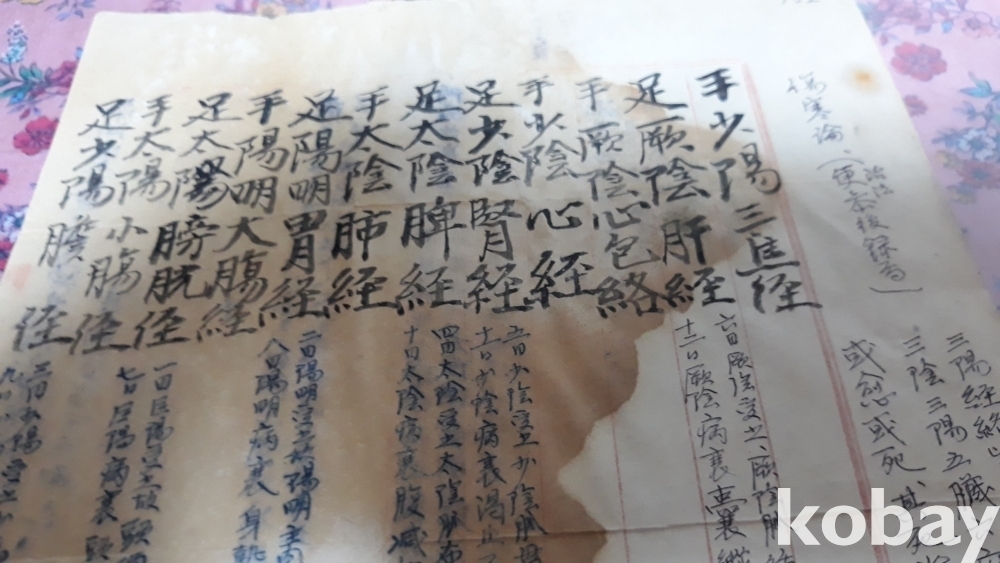 傷寒論
三陽経絡
三陰三陽五臓
或愈或死
手少陽三焦径
足厥陰肝経
手厥陰心包絡
手少陰心経
足少陰腎経
足太陰脾経
手太陰肺経
足陽明胃経
手陽明大腸経
足太陽膀胱径
手太陽小腸径
足少陽膽径
六日厥陰受之厥陰脈
十二日厥陰病衰囊縱
五日少陰受之少陰脈
十一日少陰病衰渴止
四日太陰受之太陰脈布
十日太陰病衰腹减
二日陽明受之陽明主肉
八日陽明病衰身熱
一日巨陽受之故頭
七日巨陽病衰頭
三日少陽受之
kobay